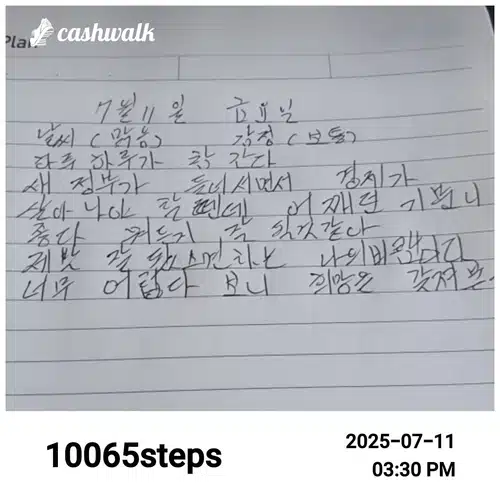 cashwalk
Plan
7월 11일 금요일
날씨 (맑음) 감정 (보통)
하루 하루가 참 간다
새 정부가 들어서면서 경제가
살아나야 할텐데 어째던 기분니
좋다 뭐든지 잘 될것같다
제발 잘 됐으면 하는 나의바램이다
너무 어렵다 보니 희망은 갖져본
10065steps
2025-07-11
03:30 PM